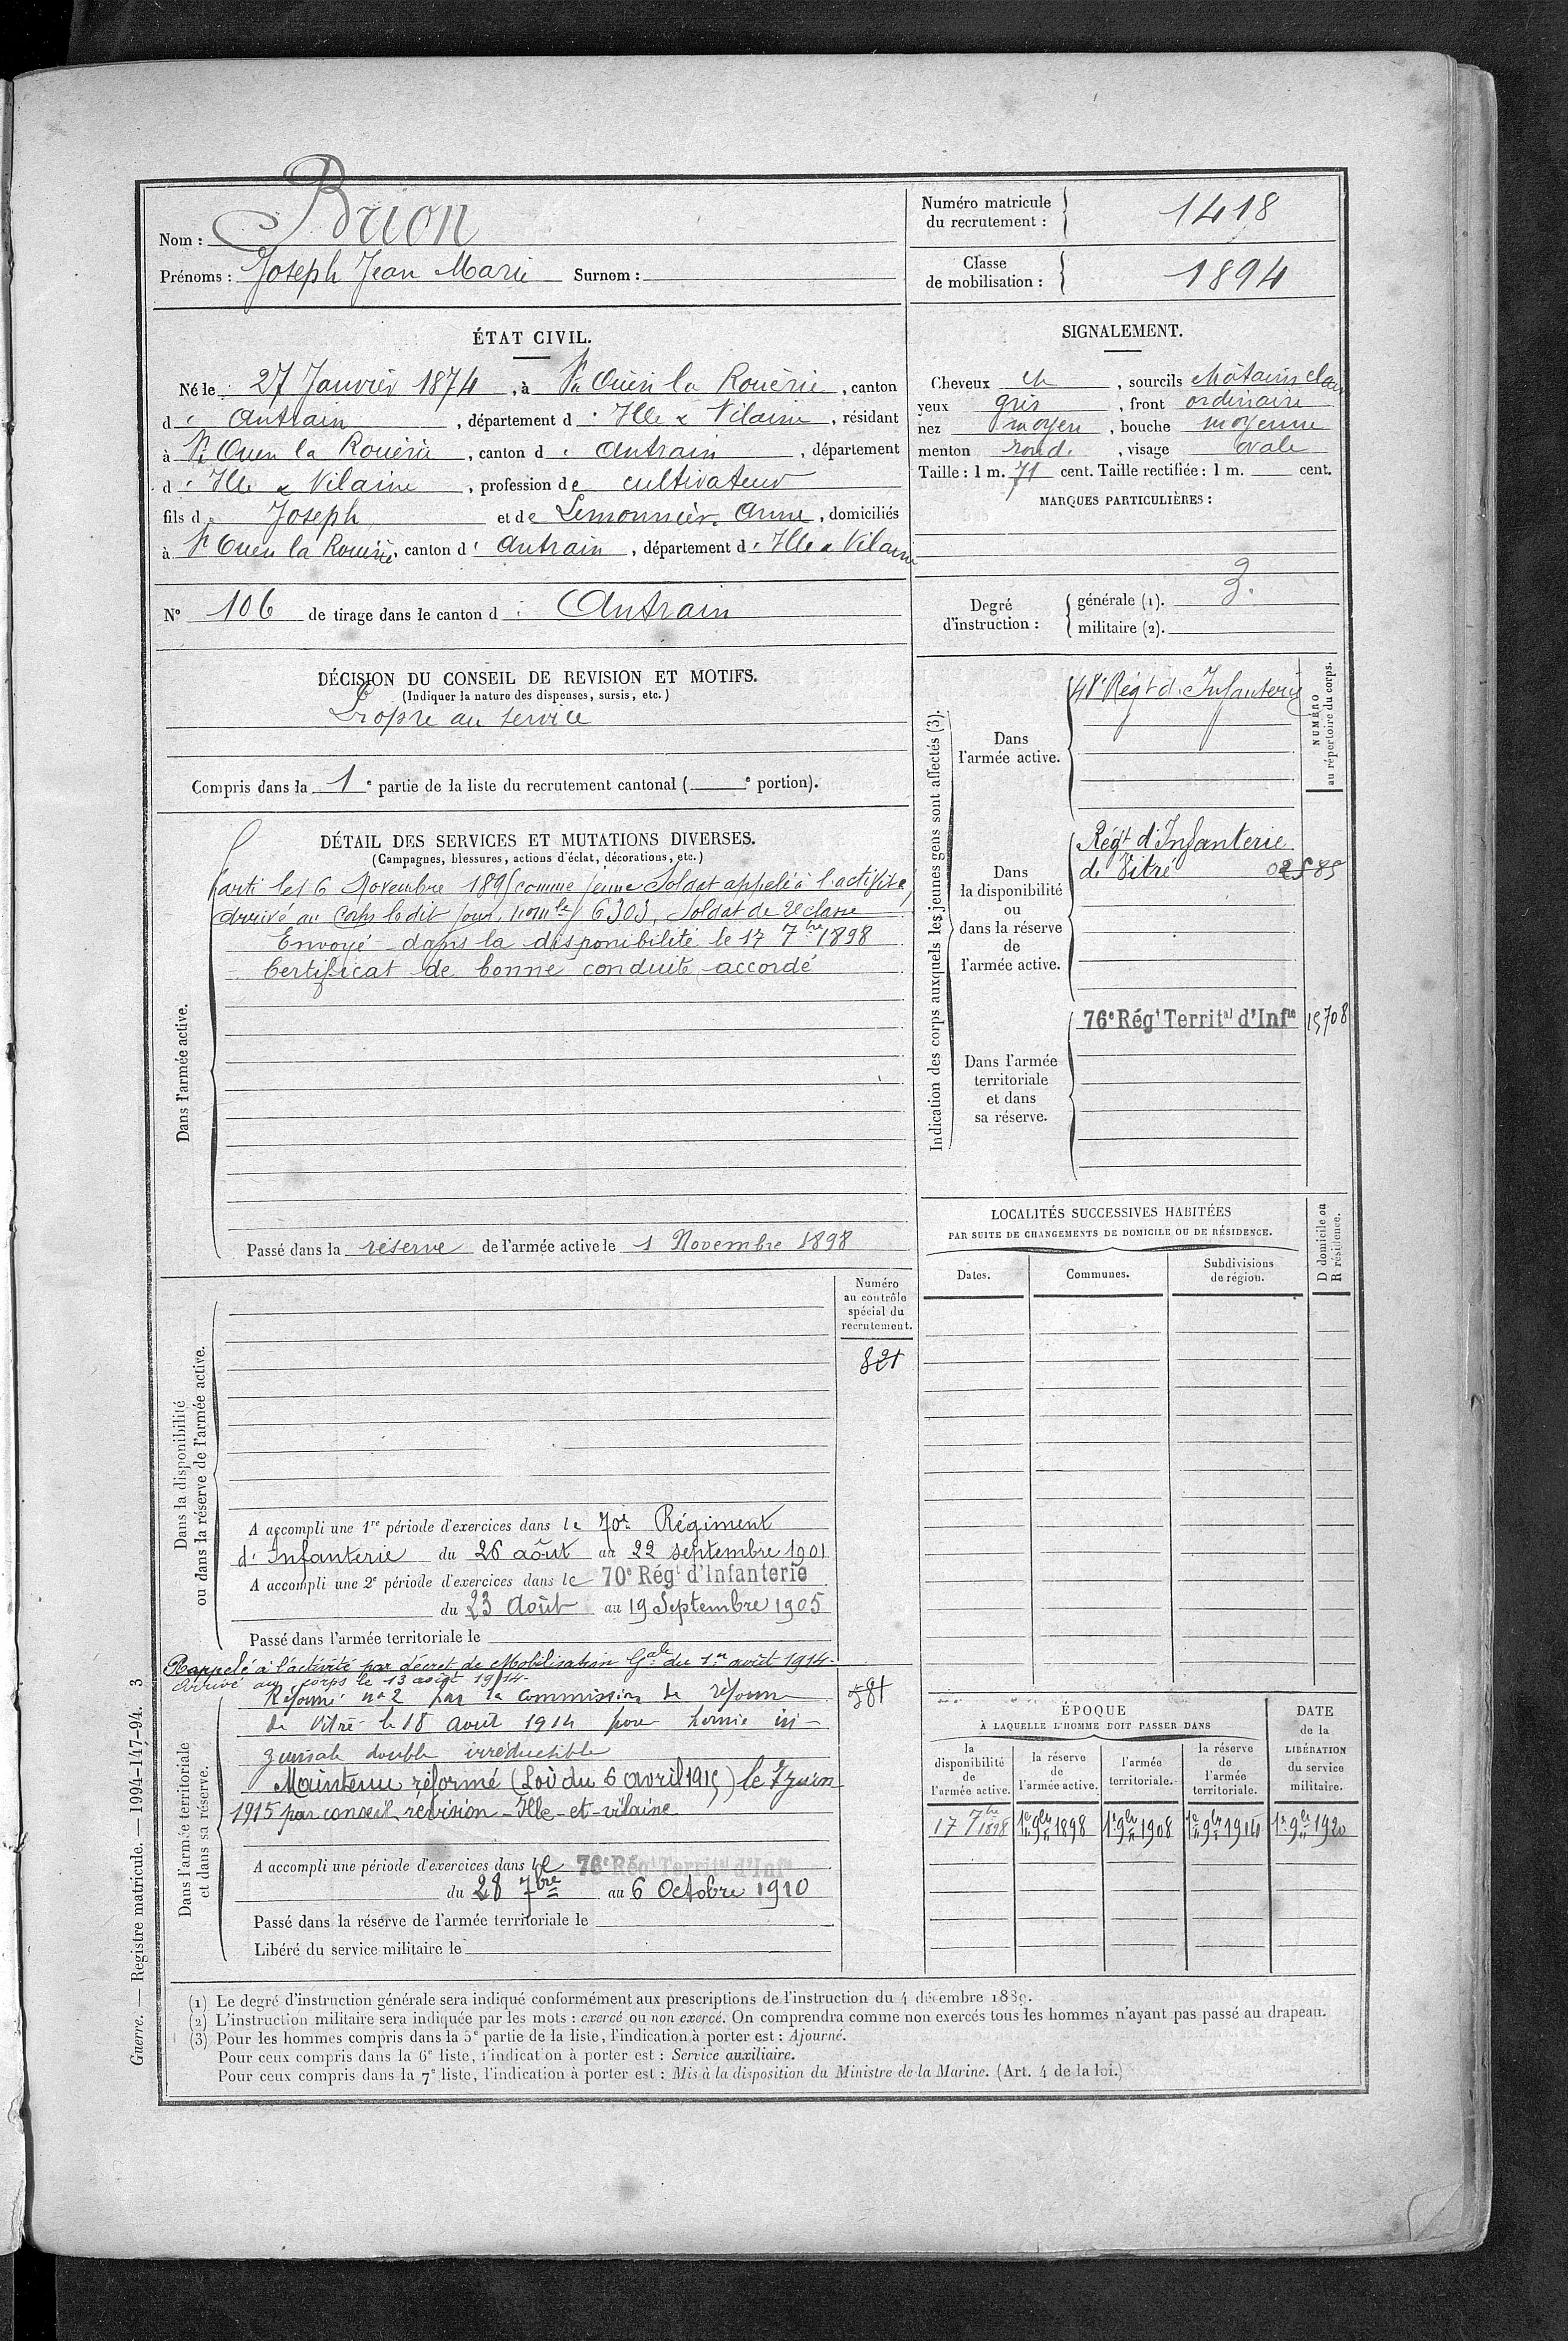 Nom : Brion
Prénoms : Joseph Jean Marie Surnom :
Numéro matricule
du recrutement : 1418
Classe
de mobilisation : 1894
ÉTAT CIVIL.
Né le 27 Janvier 1874, à St Ouen la Rouërie, canton
d' Antrain, département d' Ille & Vilaine, résidant
à St Ouen la Rouërie, canton d' Antrain, département
d' Ille & Vilaine, profession de cultivateur
fils de Joseph et de Lemonnier Anne, domiciliés
à St Ouen la Rouërie, canton d' Antrain, département d' Ille & Vilaine
N° 106 de tirage dans le canton d' Antrain
SIGNALEMENT.
Cheveux et, sourcils châtains clair
yeux gris, front ordinaire
nez moyen, bouche moyenne
menton rond, visage ovale
Taille : 1 m. 71 cent. Taille rectifiée : 1 m. cent.
MARQUES PARTICULIÈRES :
Degré
d'instruction :
générale (1). 3.
militaire (2).
DÉCISION DU CONSEIL DE REVISION ET MOTIFS.
(Indiquer la nature des dispenses, sursis, etc.)
Propre au service
Compris dans la 1e partie de la liste du recrutement cantonal ( e portion).
DÉTAIL DES SERVICES ET MUTATIONS DIVERSES.
(Campagnes, blessures, actions d'éclat, décorations, etc.)
Dans l'armée active.
Parti le 16 Novembre 1895 comme jeune Soldat appelé à l'activité,
arrivé au Corps le dit jour, n° mle 6303, Soldat de 2e classe
Envoyé dans la disponibilité le 17 7bre 1898
Certificat de bonne conduite accordé
Passé dans la réserve de l'armée active le 1 Novembre 1898
Indication des corps auxquels les jeunes gens sont affectés (3).
NUMÉRO
au répertoire du corps.
Dans
l'armée active.
48e Régt d'Infanterie
Dans
la disponibilité
ou
dans la réserve
de
l'armée active.
Régt d'Infanterie
de Vitré
Dans l'armée
territoriale
et dans
sa réserve.
76e Régt Territal d'Infie 15708
LOCALITÉS SUCCESSIVES HABITÉES
PAR SUITE DE CHANGEMENTS DE DOMICILE OU DE RÉSIDENCE.
Dates.
Communes.
Subdivisions
de région.
D domicile ou
R résidence.
Dans la disponibilité
ou dans la réserve de l'armée active.
Numéro
au contrôle
spécial du
recrutement.
821
A accompli une 1re période d'exercices dans le 70e Régiment
d'Infanterie du 26 août au 22 septembre 1901
A accompli une 2e période d'exercices dans le 70e Régt d'Infanterie
du 23 Août au 19 Septembre 1905
Passé dans l'armée territoriale le
Rappelé à l'activité par décret de Mobilisation Gale du 1er août 1914-
Arrivé au corps le 13 août 1914-
Dans l'armée territoriale
et dans sa réserve.
581
Réformé n° 2 par la commission de réforme
de Vitré le 18 août 1914 pour hernie in-
guinale double irréductible
Maintenu réformé (Loi du 6 avril 1915) le 7 juin
1915 par conseil révision - Ille-et-vilaine
A accompli une période d'exercices dans le 76e Régt Territal d'Infie
du 28 7bre au 6 Octobre 1910
Passé dans la réserve de l'armée territoriale le
Libéré du service militaire le
ÉPOQUE
À LAQUELLE L'HOMME DOIT PASSER DANS
la
disponibilité
de
l'armée active.
la réserve
de
l'armée active.
l'armée
territoriale.
la réserve
de
l'armée
territoriale.
DATE
de la
LIBÉRATION
du service
militaire.
17 7bre 1898 1er 9bre 1898 1er 9bre 1908 1er 9bre 1914 1er 9bre 1920
Guerre. — Registre matricule. — 1994-147-94. 3
(1) Le degré d'instruction générale sera indiqué conformément aux prescriptions de l'instruction du 4 décembre 1889.
(2) L'instruction militaire sera indiquée par les mots : exercé ou non exercé. On comprendra comme non exercés tous les hommes n'ayant pas passé au drapeau.
(3) Pour les hommes compris dans la 5e partie de la liste, l'indication à porter est : Ajourné.
Pour ceux compris dans la 6e liste, l'indication à porter est : Service auxiliaire.
Pour ceux compris dans la 7e liste, l'indication à porter est : Mis à la disposition du Ministre de la Marine. (Art. 4 de la loi.)